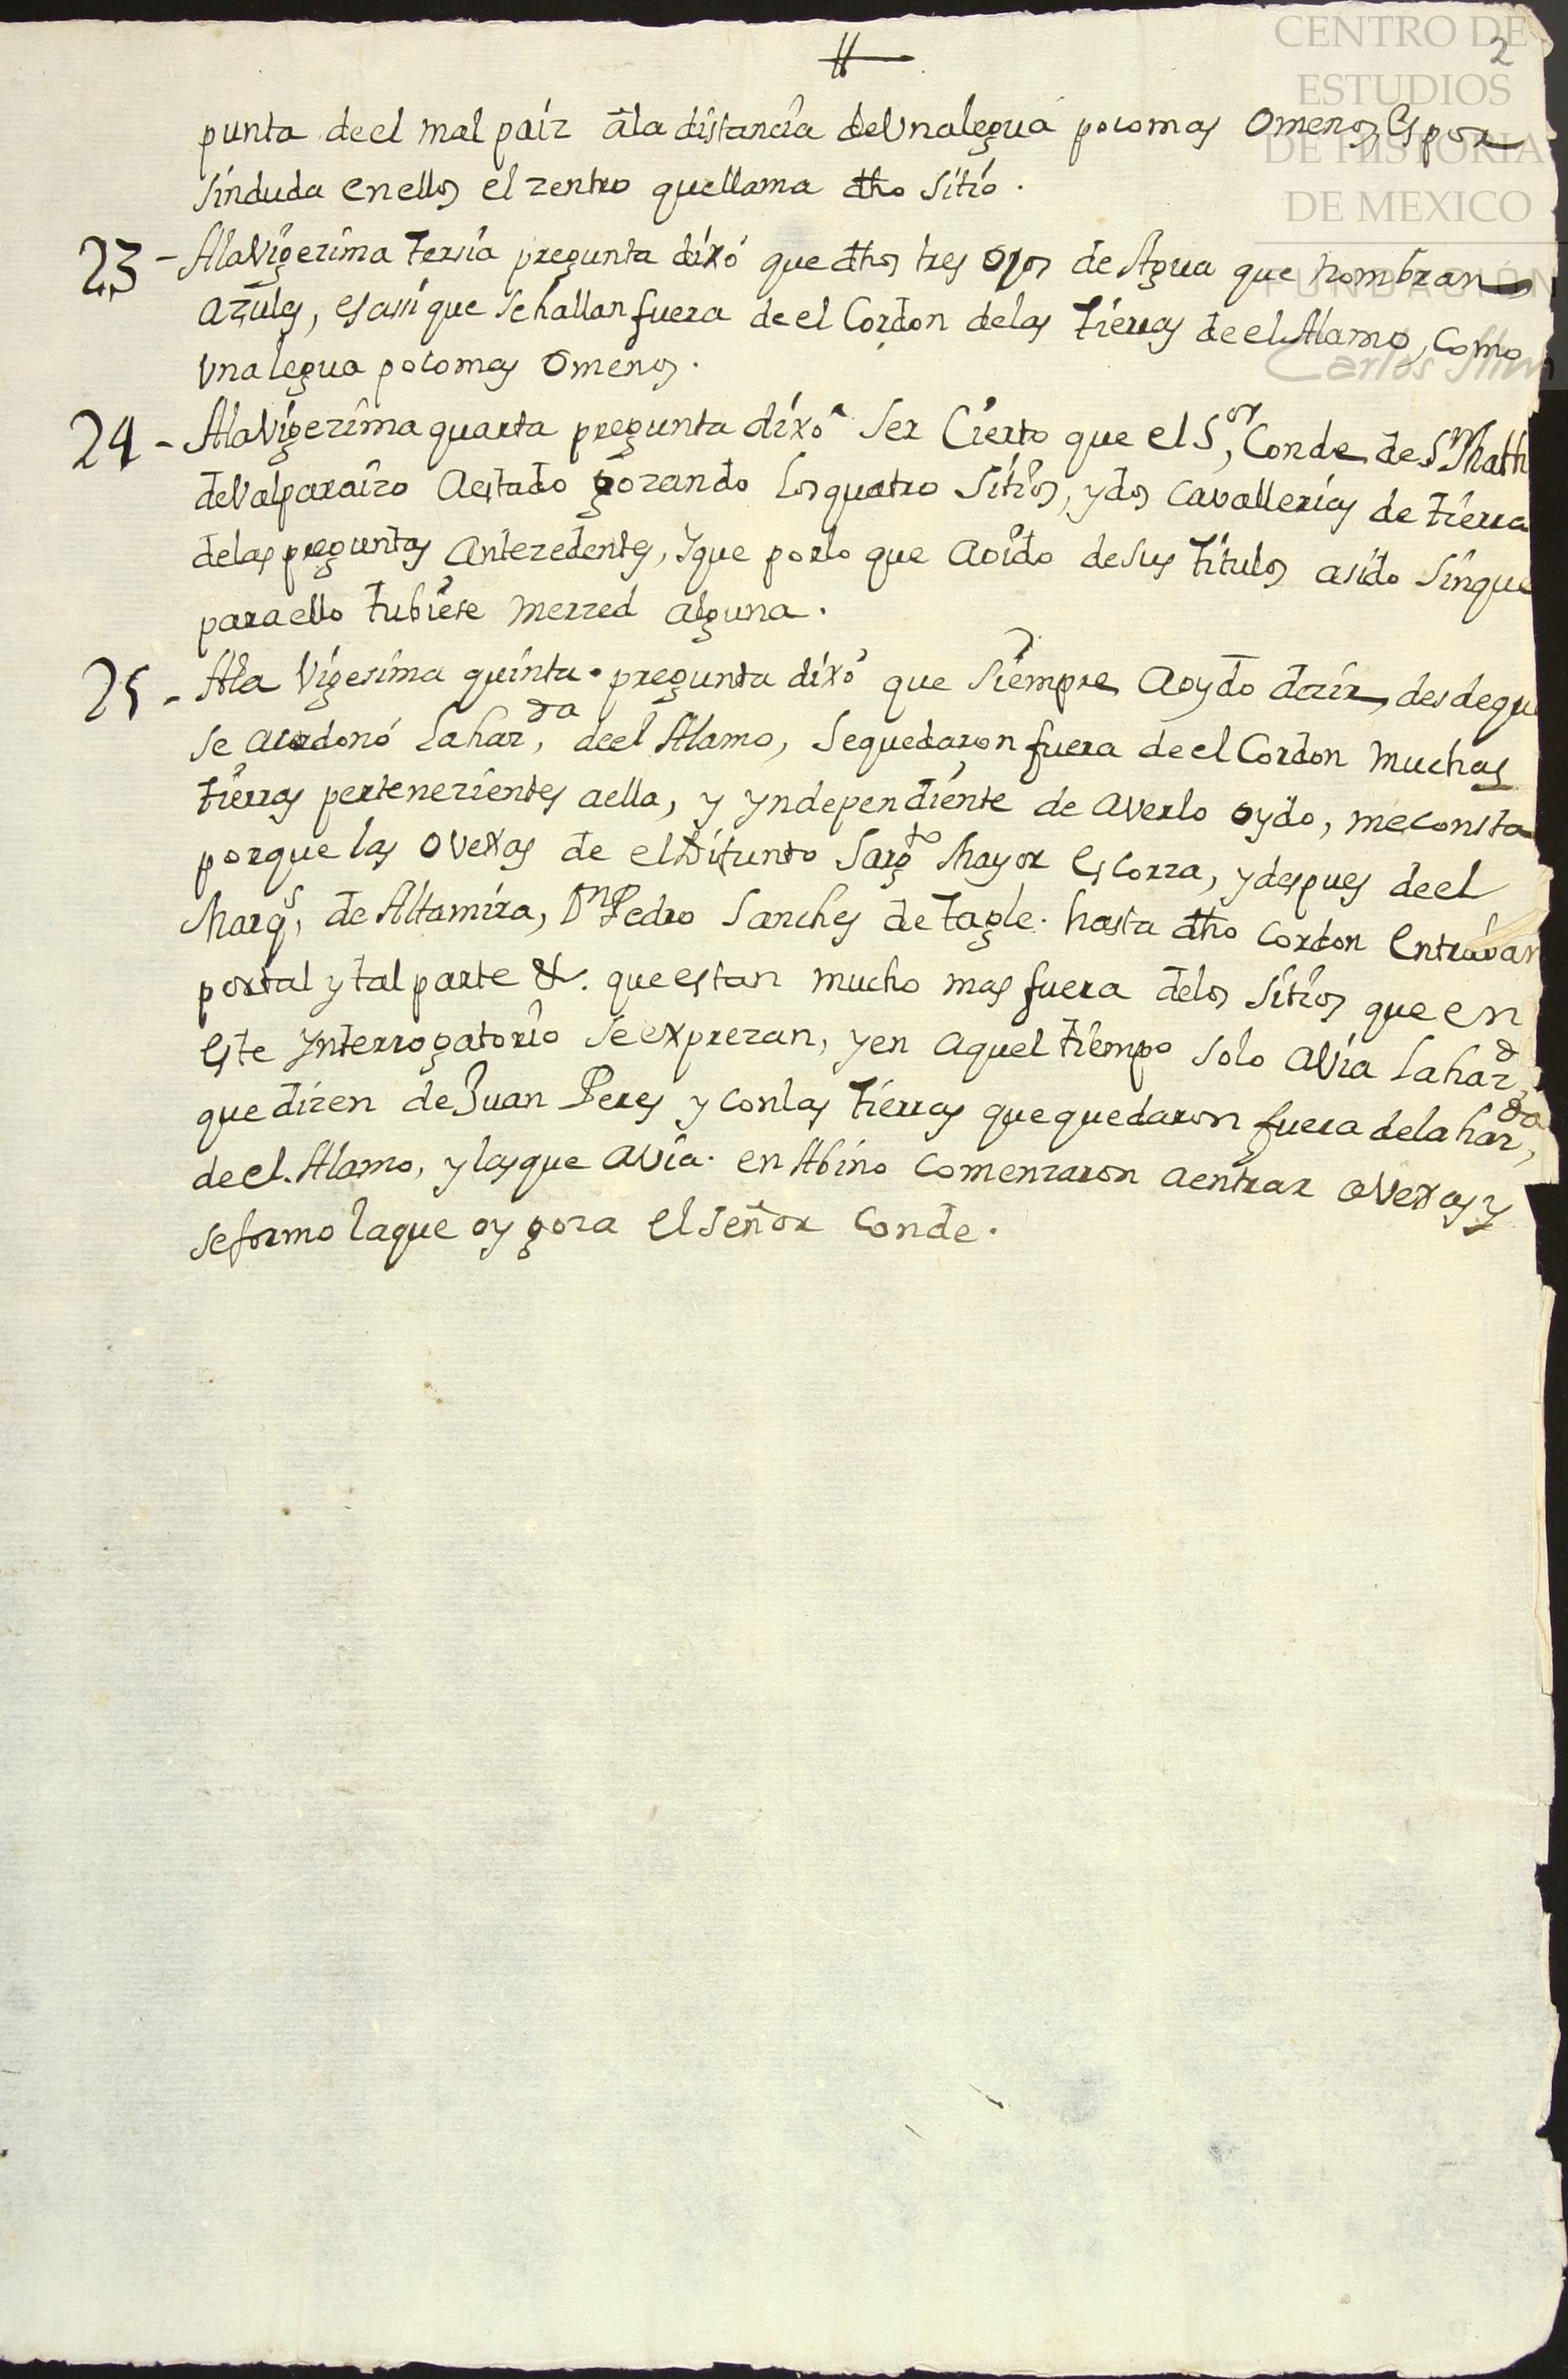 2
punta de el mal paiz âla distancia de Vna legua poco mas o menos, es por
sin duda en ellos el zentro que llama dho Sitio.
23 - A la Vigezima Tersia pregunta dixó que dhos tres Ojos de Agua que nombran
azules, es assi que se hallan fuera de el Cordon de las Tierras de el Alamo, como
Vna legua poco mas o menos.
24 - A la Vigezima quarta pregunta dixo Ser Cierto que el S.or Conde de S.n Math
de Valparaizo a estado gozando los quatro Sitios, y dos Cavallerias de tierra
de las preguntas antezedentes, y que por lo que a oido de sus Titulos a sido sin que
para ello tubiese merzed alguna.
25 - A la Vigesima quinta pregunta dixo que Siempre a oydo dezir, desde que
se acordonó la haz.da de el Alamo, se quedaron fuera de el Cordon muchas
tierras pertenezientes a ella, y yndependiente de averlo oydo, me consta
porque las ovexas de el Difunto Sarg.to Mayor Escorza, y despues de el
Marq.s de Altamira, D.n Pedro Sanches de Tagle. hasta dho cordon Entravan
por tal y tal parte &. que estan mucho mas fuera de los Sitios que en
este Ynterrogatorio se exprezan, y en aquel tiempo solo avia la haz.d
que dizen de Juan Peres y con las Tierras que quedaron fuera de la haz.da
de el Alamo, y las que avia. en Abino comenzaron a entrar ovexas y
se formo la que oy goza el Señor Conde.
CENTRO DE
ESTUDIOS
DE HISTORIA
DE MEXICO
FUNDACIÓN
Carlos Slim